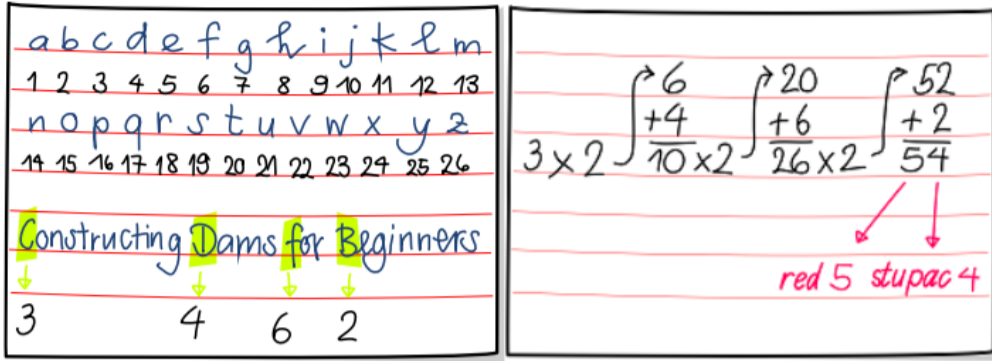 a b c d e f g h i j k l m
1 2 3 4 5 6 7 8 9 10 11 12 13
n o p q r s t u v w x y z
14 15 16 17 18 19 20 21 22 23 24 25 26
Constructing Dams for Beginners
3 4 6 2
6 20 52
+4 +6 +2
3 x 2 10 x 2 26 x 2 54
red 5 stupac 4